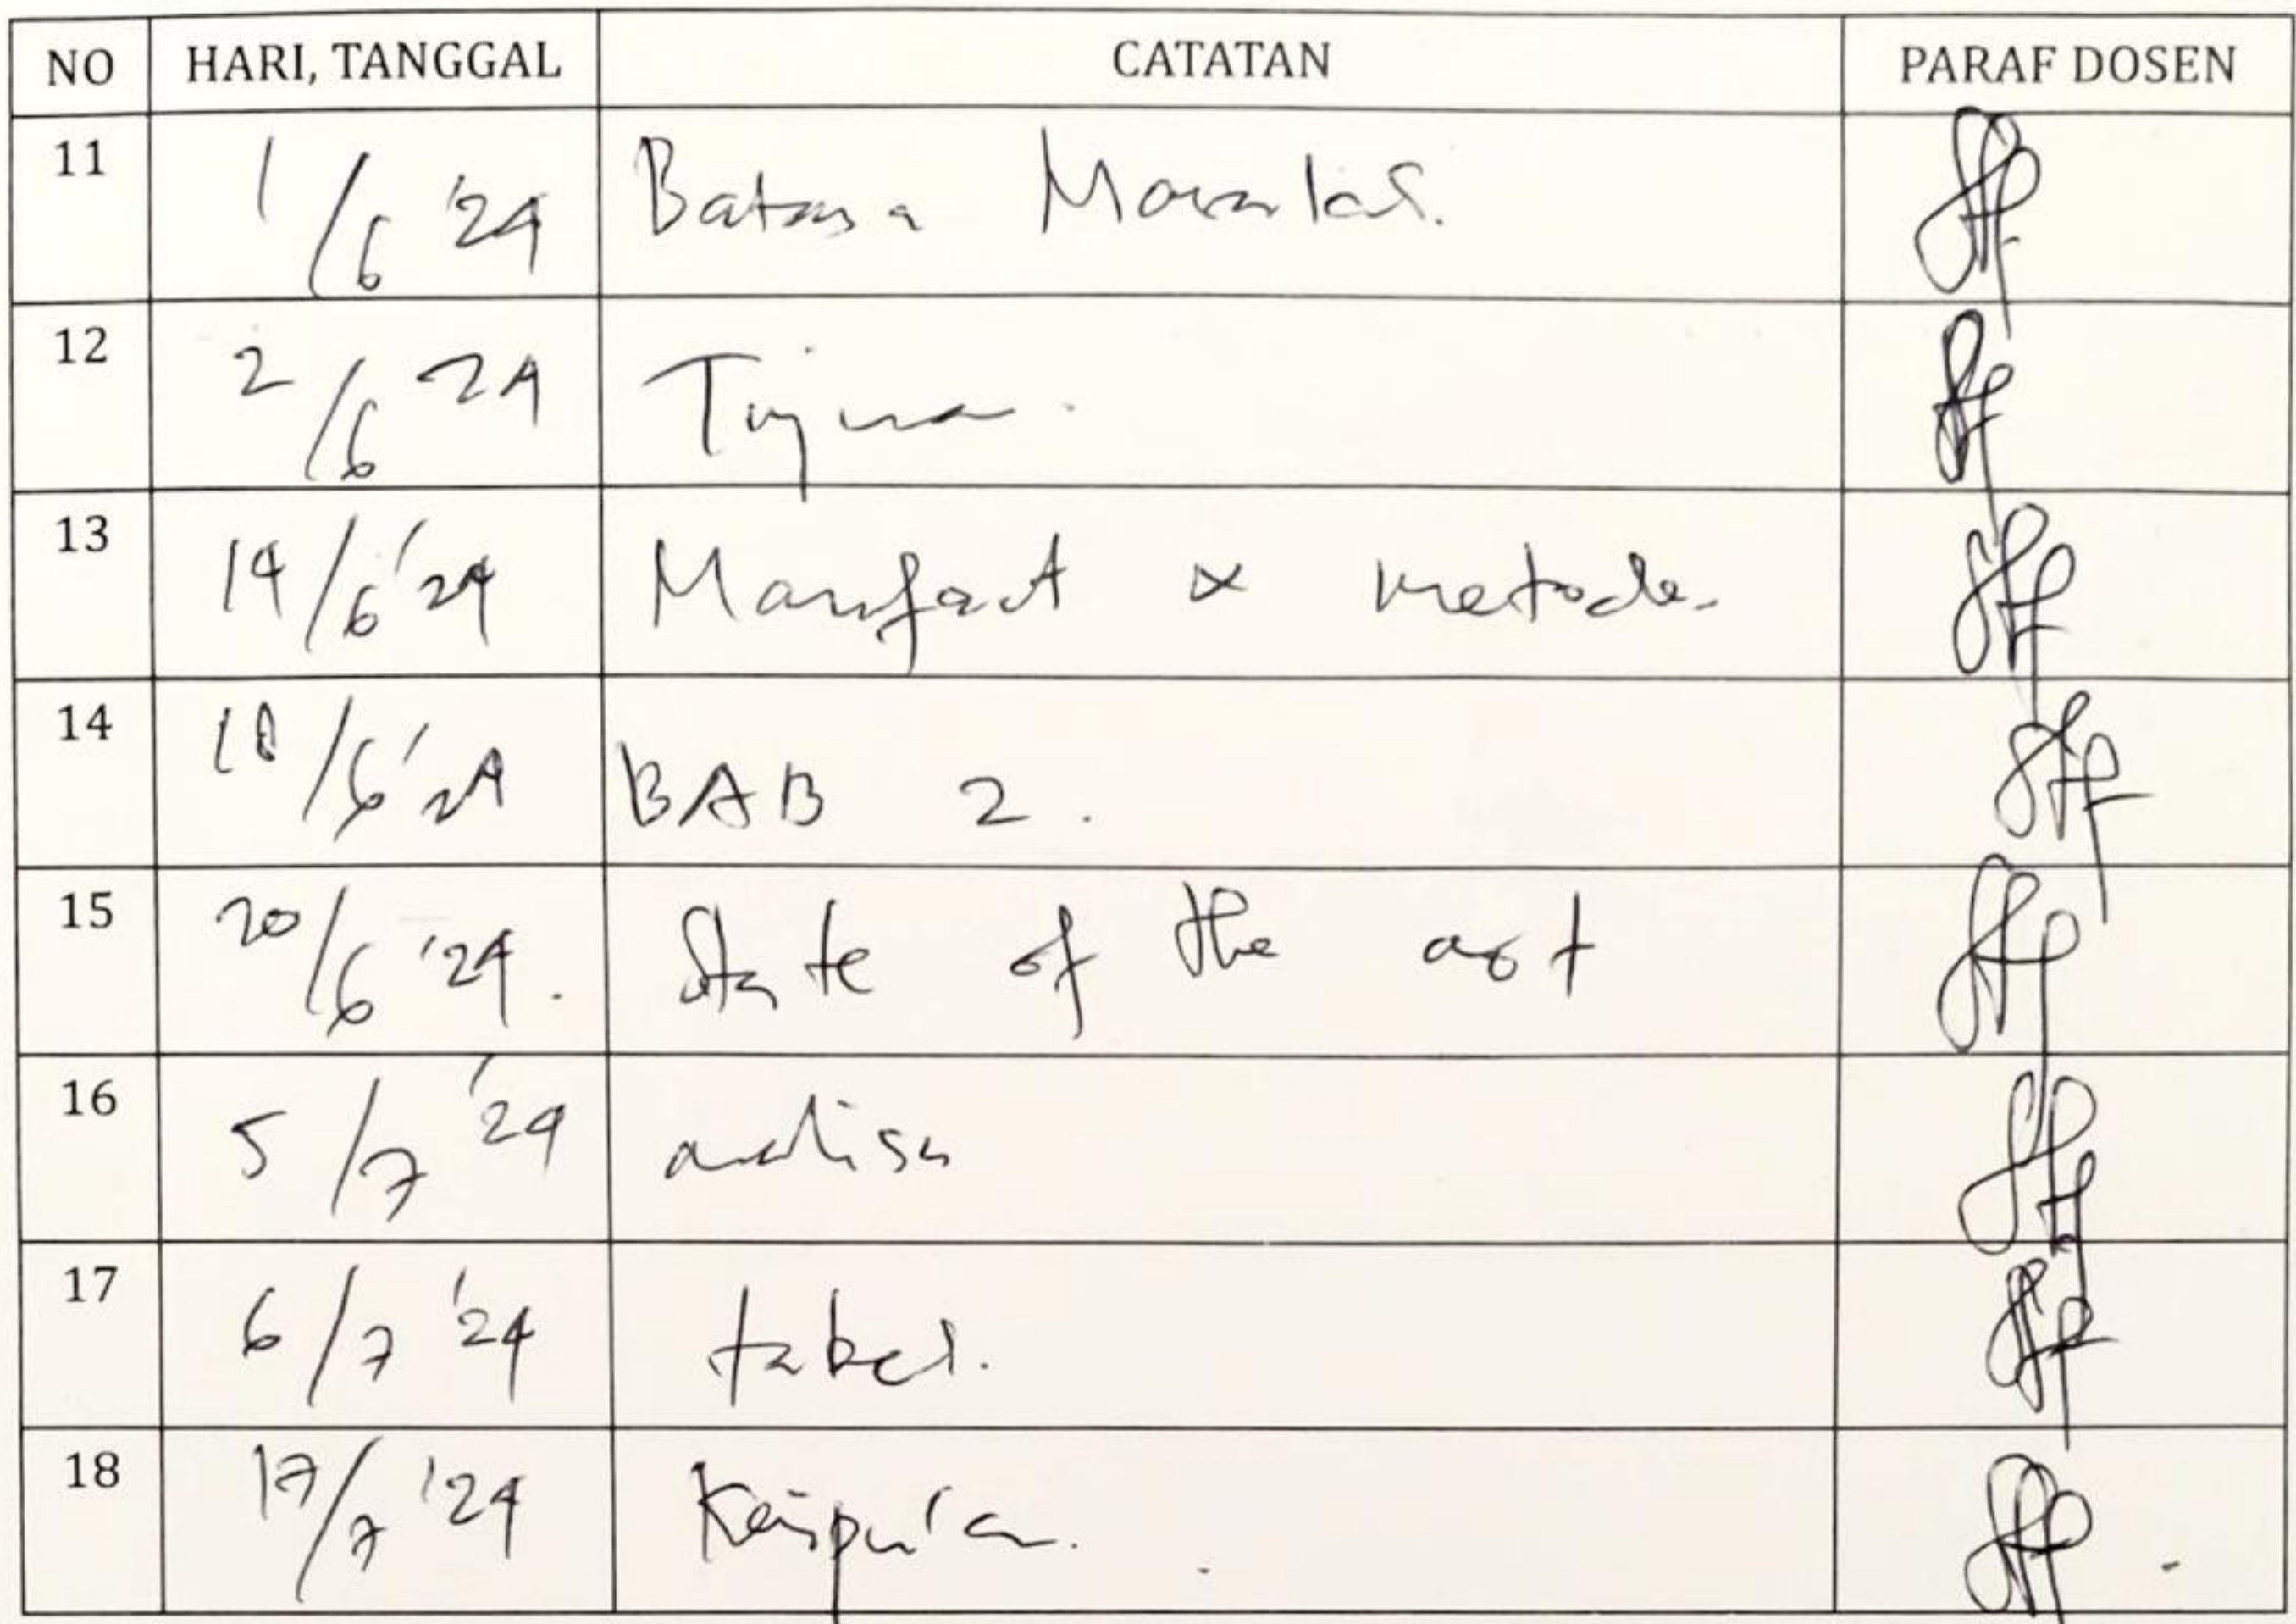 NO HARI, TANGGAL CATATAN PARAF DOSEN
11 1/6 '24 Batasan Masalah.
12 2/6 24 Tujuan.
13 14/6 '24 Manfaat & metode.
14 18/6 '24 BAB 2.
15 20/6 '24. State of the art
16 5/7 '24 analisa
17 6/7 '24 tabel.
18 17/7 '24 Kesimpulan.